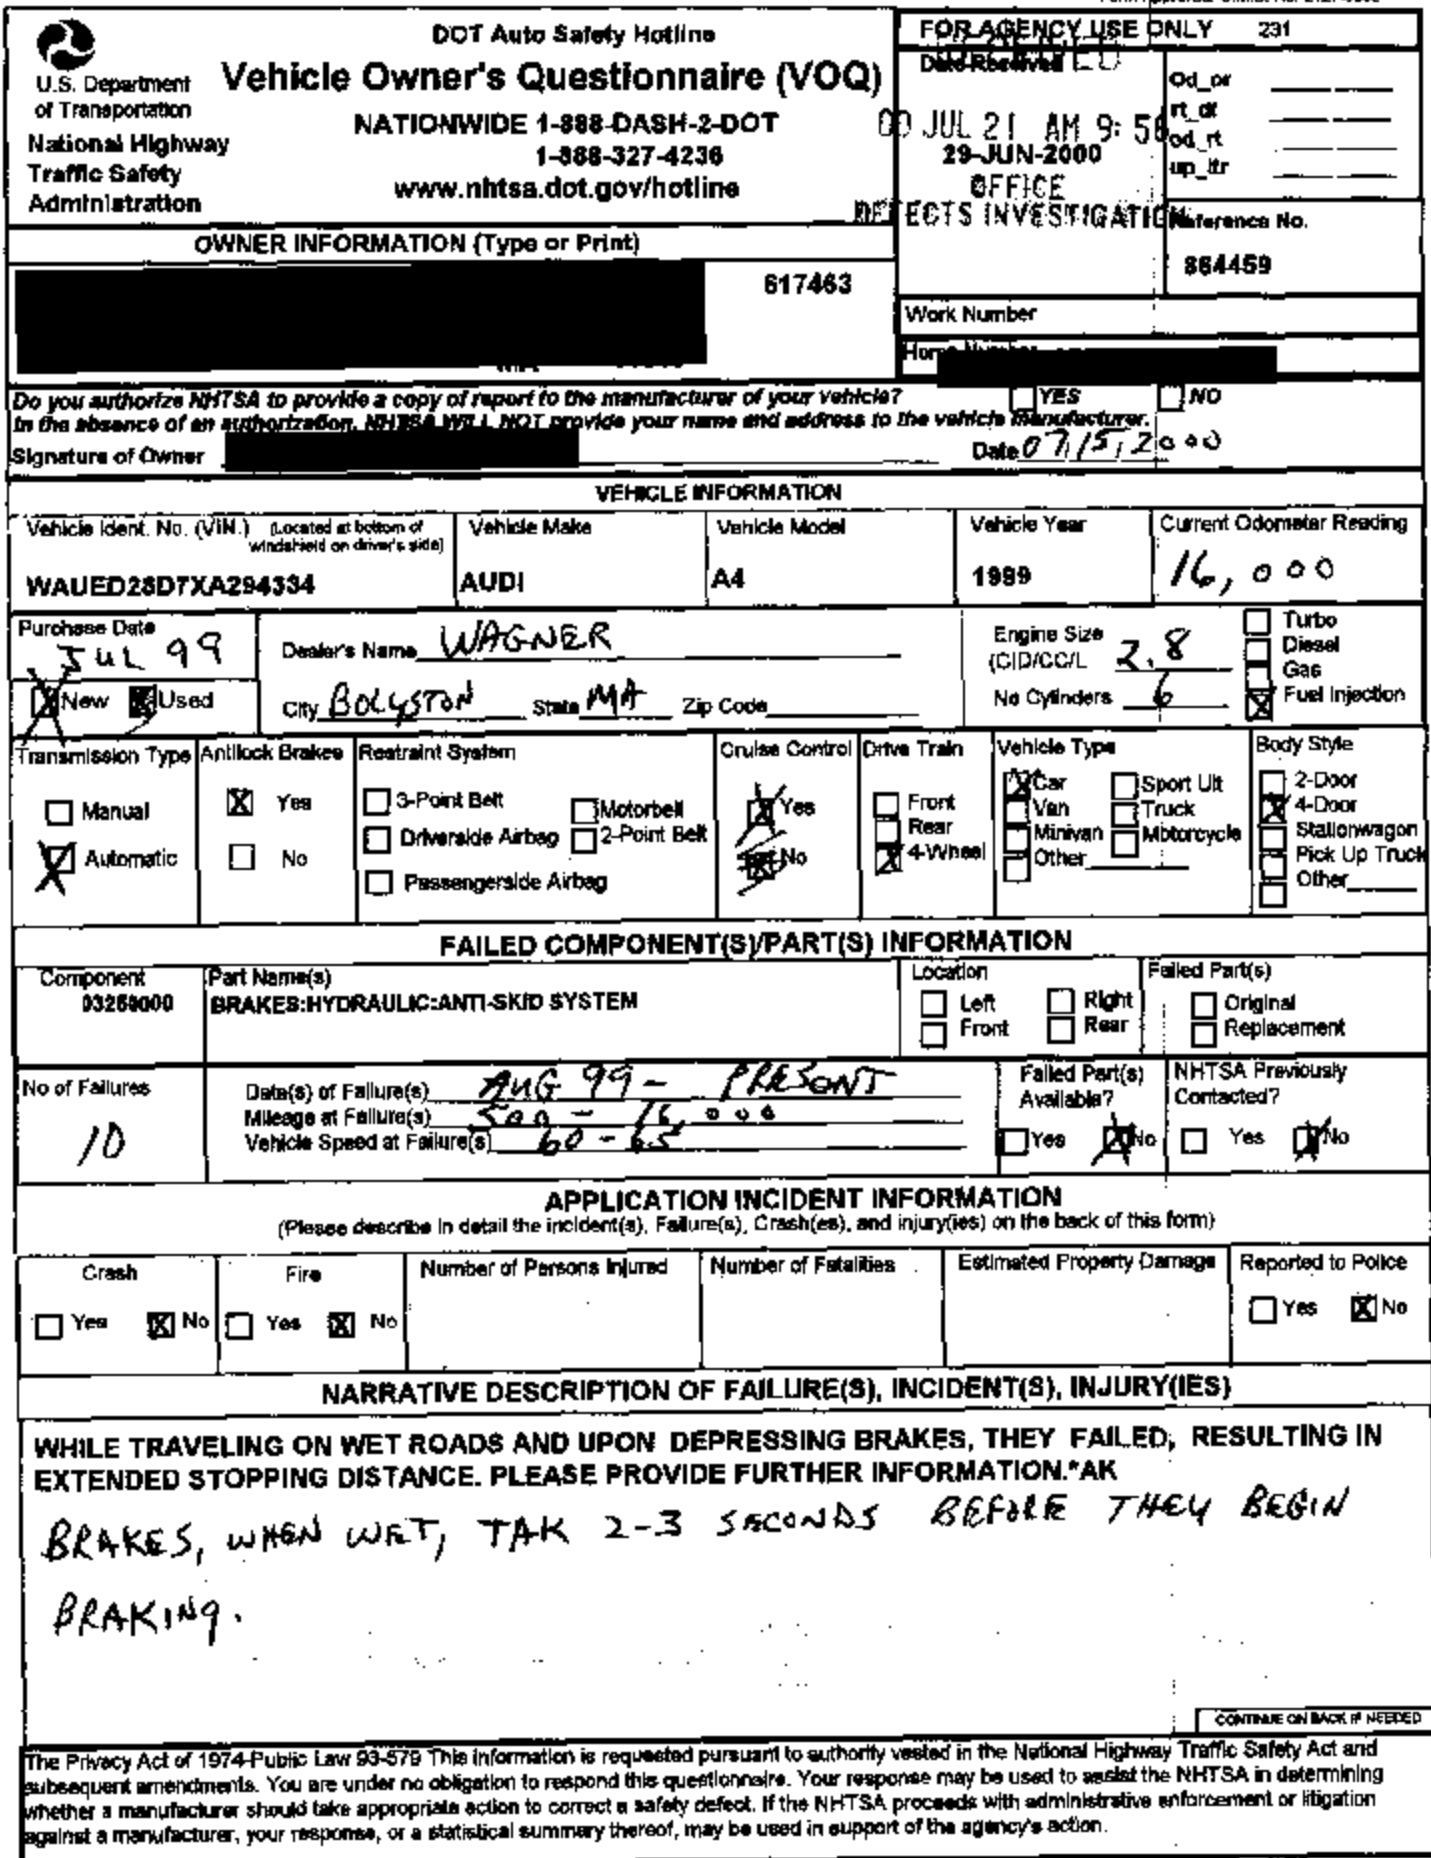 DOT Auto Safety Hotline
Vehicle Owner's Questionnaire (VOQ)
NATIONWIDE 1-888-DASH-2-DOT
1-888-327-4236
www.nhtsa.dot.gov/hotline
U.S. Department
of Transportation
National Highway
Traffic Safety
Administration
FOR AGENCY USE ONLY 231
Date Received
Od_or
rt_dt
od_rt
up_ltr
00 JUL 21 AM 9: 56
29-JUN-2000
OFFICE
DEFECTS INVESTIGATION
Reference No.
864459
OWNER INFORMATION (Type or Print)
617463
Work Number
Home Number
Do you authorize NHTSA to provide a copy of report to the manufacturer of your vehicle? YES NO
In the absence of an authorization, NHTSA WILL NOT provide your name and address to the vehicle manufacturer.
Signature of Owner Date 07/5/2000
VEHICLE INFORMATION
Vehicle Ident. No. (VIN.) (Located at bottom of windshield on driver's side)
WAUED28D7XA294334
Vehicle Make
AUDI
Vehicle Model
A4
Vehicle Year
1999
Current Odometer Reading
16,000
Purchase Date
JUL 99
New Used
Dealer's Name WAGNER
City BOLYSTON State MA Zip Code
Engine Size
(CID/CC/L 2.8
No Cylinders 6
Turbo
Diesel
Gas
Fuel Injection
Transmission Type
Manual
Automatic
Antilock Brakes
Yes
No
Restraint System
3-Point Belt Motorbelt
Driverside Airbag 2-Point Belt
Passengerside Airbag
Cruise Control
Yes
No
Drive Train
Front
Rear
4-Wheel
Vehicle Type
Car Sport Ult
Van Truck
Minivan Motorcycle
Other
Body Style
2-Door
4-Door
Stationwagon
Pick Up Truck
Other
FAILED COMPONENT(S)/PART(S) INFORMATION
Component
03250000
Part Name(s)
BRAKES:HYDRAULIC:ANTI-SKID SYSTEM
Location
Left Right
Front Rear
Failed Part(s)
Original
Replacement
No of Failures
10
Date(s) of Failure(s) AUG 99 - PRESONT
Mileage at Failure(s) 500 - 16,000
Vehicle Speed at Failure(s) 60 - 65
Failed Part(s)
Available?
Yes No
NHTSA Previously
Contacted?
Yes No
APPLICATION INCIDENT INFORMATION
(Please describe in detail the incident(s), Failure(s), Crash(es), and injury(ies) on the back of this form)
Crash
Yes No
Fire
Yes No
Number of Persons Injured
Number of Fatalities
Estimated Property Damage
Reported to Police
Yes No
NARRATIVE DESCRIPTION OF FAILURE(S), INCIDENT(S), INJURY(IES)
WHILE TRAVELING ON WET ROADS AND UPON DEPRESSING BRAKES, THEY FAILED, RESULTING IN
EXTENDED STOPPING DISTANCE. PLEASE PROVIDE FURTHER INFORMATION.*AK
BRAKES, WHEN WET, TAK 2-3 SECONDS BEFORE THEY BEGIN
BRAKING.
CONTINUE ON BACK IF NEEDED
The Privacy Act of 1974-Public Law 93-579 This information is requested pursuant to authority vested in the National Highway Traffic Safety Act and
subsequent amendments. You are under no obligation to respond this questionnaire. Your response may be used to assist the NHTSA in determining
whether a manufacturer should take appropriate action to correct a safety defect. If the NHTSA proceeds with administrative enforcement or litigation
against a manufacturer, your response, or a statistical summary thereof, may be used in support of the agency's action.